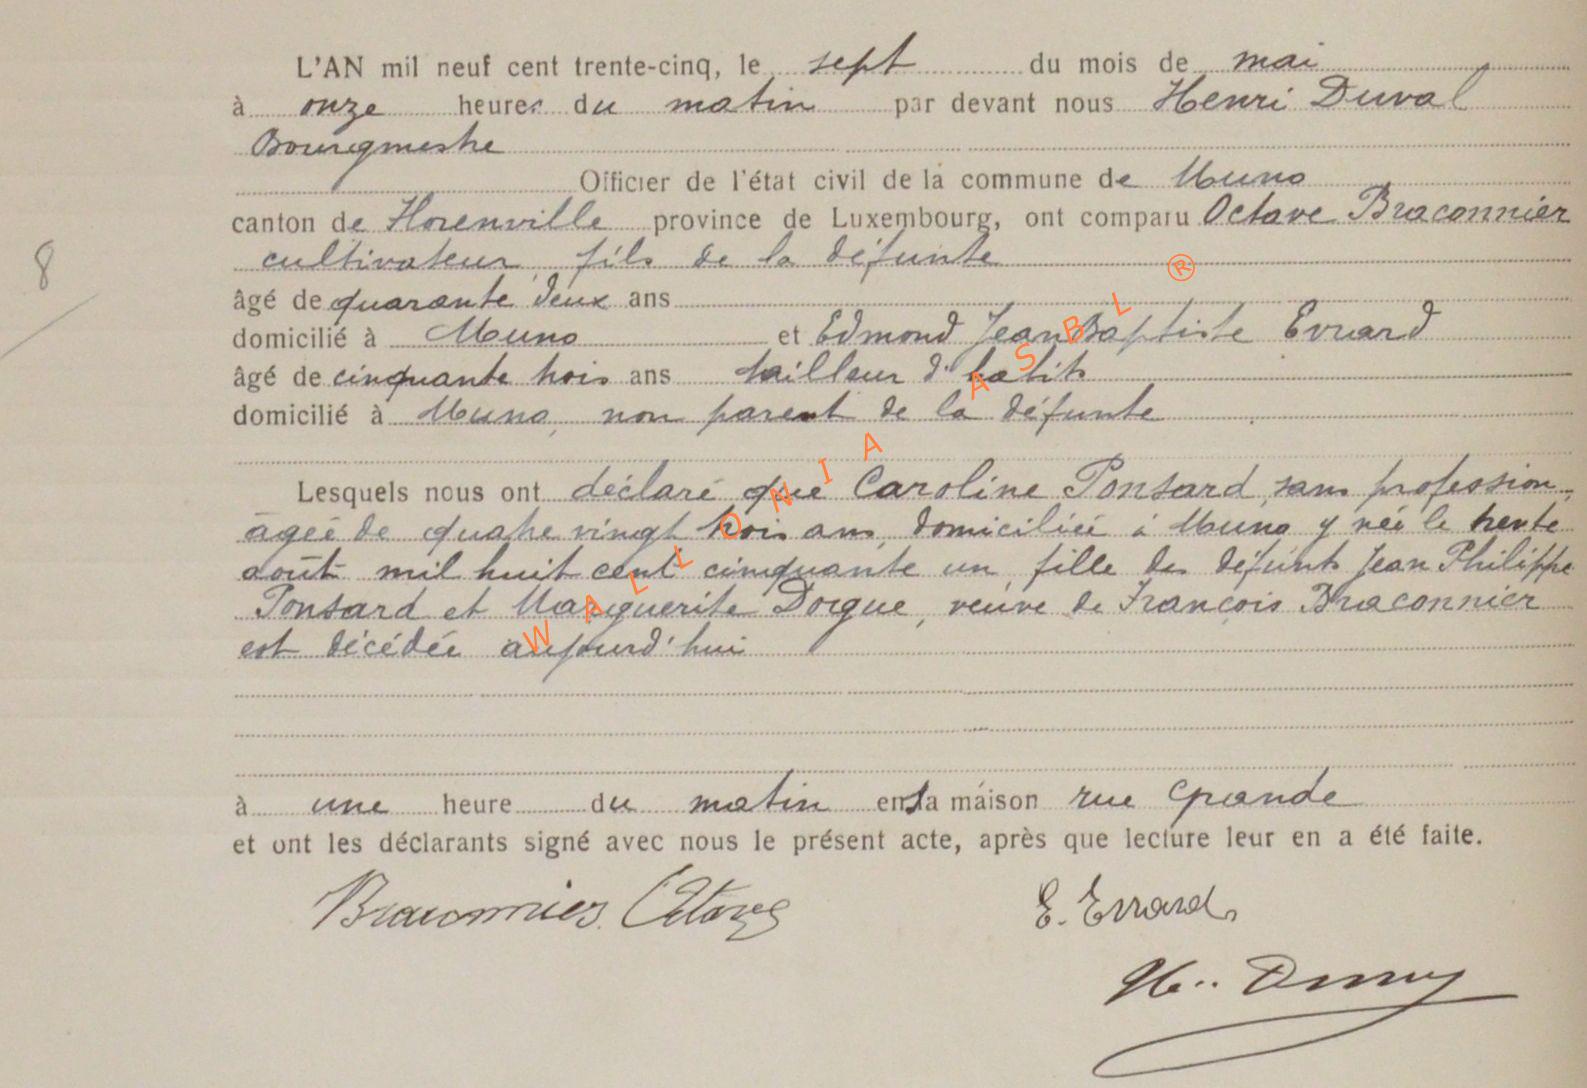 L'AN mil neuf cent trente-cinq, le sept du mois de mai
à onze heures du matin par devant nous Henri Duval
Bourgmestre
Officier de l'état civil de la commune de Muno
canton de Florenville province de Luxembourg, ont comparu Octave Braconnier
cultivateur fils de la défunte
âgé de quarante deux ans
domicilié à Muno et Edmond Jean Baptiste Errard
âgé de cinquante trois ans tailleur d'habits
domicilié à Muno, non parent de la défunte
Lesquels nous ont déclaré que Caroline Ponsard, sans profession,
âgée de quatre vingt trois ans, domiciliée à Muno y née le trente
août mil huit cent cinquante un fille des défunts Jean Philippe
Ponsard et Marguerite Dorgue, veuve de François Braconnier
est décédée aujourd'hui
à une heure du matin en sa maison rue Grande
et ont les déclarants signé avec nous le présent acte, après que lecture leur en a été faite.
Braconnier Octave E. Errard
8
WALLONIA ASBL ®